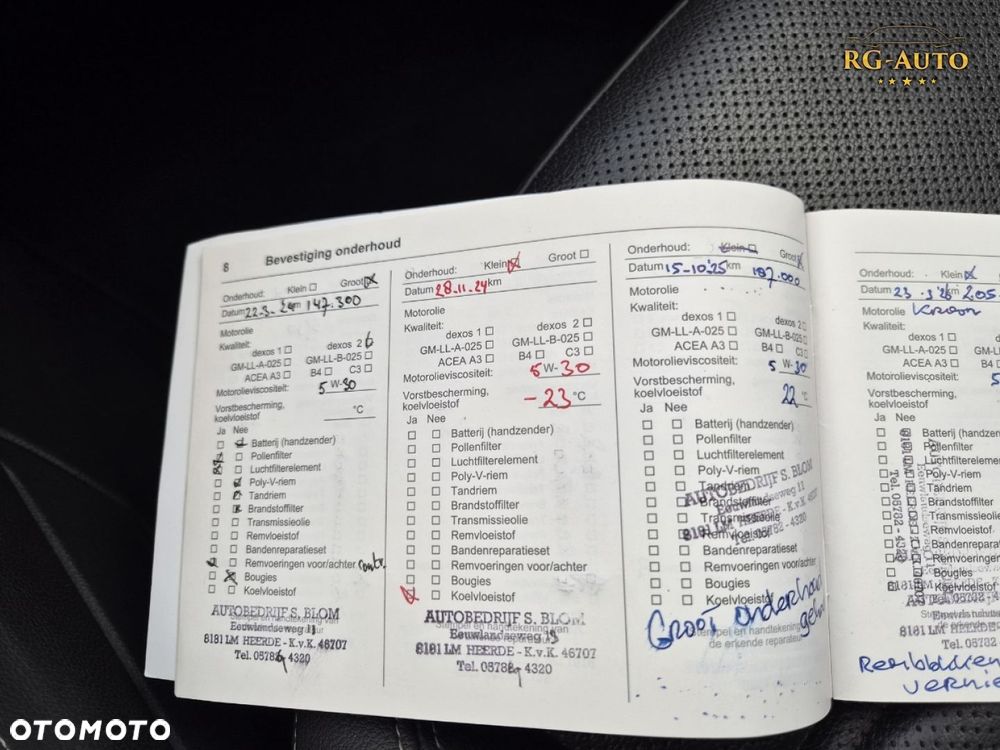 RG-AUTO
8 Bevestiging onderhoud
Onderhoud: Klein Groot
Datum 22-3-24 km 147.300
Motorolie
Kwaliteit:
dexos 1 dexos 2
GM-LL-A-025 GM-LL-B-025
ACEA A3 B4 C3
Motorolieviscositeit:
5 W-30
Vorstbescherming,
koelvloeistof °C
Ja Nee
Batterij (handzender)
Pollenfilter
Luchtfilterelement
Poly-V-riem
Tandriem
Brandstoffilter
Transmissieolie
Remvloeistof
Bandenreparatieset
Remvoeringen voor/achter
Bougies
Koelvloeistof
AUTOBEDRIJF S. BLOM
Eeuwlandseweg 11
8181 LM HEERDE - K.v.K. 46707
Tel. 05782-4320
Onderhoud: Klein Groot
Datum 28.11.24 km
Motorolie
Kwaliteit:
dexos 1 dexos 2
GM-LL-A-025 GM-LL-B-025
ACEA A3 B4 C3
Motorolieviscositeit: 5 W-30
Vorstbescherming,
koelvloeistof -23 °C
Ja Nee
Batterij (handzender)
Pollenfilter
Luchtfilterelement
Poly-V-riem
Tandriem
Brandstoffilter
Transmissieolie
Remvloeistof
Bandenreparatieset
Remvoeringen voor/achter
Bougies
Koelvloeistof
AUTOBEDRIJF S. BLOM
Stempel en handtekening van
Eeuwlandseweg
8181 LM HEERDE - K.v.K. 46707
Tel. 05782-4320
Onderhoud: Klein Groot
Datum 15-10-'25 km 187.000
Motorolie
Kwaliteit:
dexos 1 dexos 2
GM-LL-A-025 GM-LL-B-025
ACEA A3 B4 C3
Motorolieviscositeit: 5 W-30
Vorstbescherming,
koelvloeistof 22 °C
Ja Nee
Batterij (handzender)
Pollenfilter
Luchtfilterelement
Poly-V-riem
Tandriem
Brandstoffilter
Transmissieolie
Remvloeistof
Bandenreparatieset
Remvoeringen voor/achter
Bougies
Koelvloeistof
AUTOBEDRIJF S. BLOM
Eeuwlandseweg 11
8181 LM HEERDE - K.v.K.
Tel. 05782-4320
Groot onderhoud
Stempel en handtekening
de erkende reparateur
Onderhoud: Klein Groot
Datum 23 km 205
Motorolie Kroon
Kwaliteit:
dexos 1
GM-LL-A-025
ACEA A3
Motorolieviscositeit: 5
Vorstbescherming,
koelvloeistof
Ja Nee
Batterij
Pollenfilter
Poly-V-riem
Tandriem
Bougies
8181 LM HEERDE
OTOMOTO